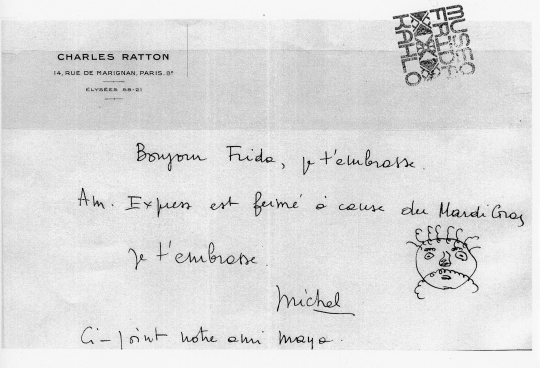 CHARLES RATTON
14, RUE DE MARIGNAN, PARIS. 8e
ÉLYSÉES 58-21
MUSEO
FRIDA
KAHLO
Bonjour Frida, je t'embrasse.
Am. Express est fermé à cause du Mardi Gras
je t'embrasse.
Michel
Ci-joint notre ami maya.